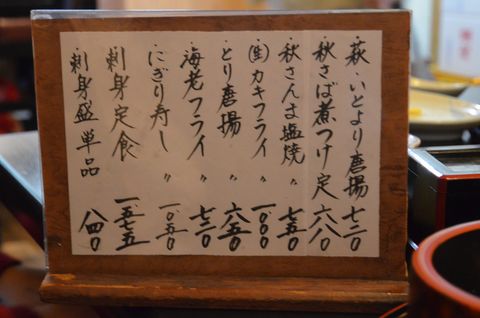 ・萩・いとより唐揚 七二〇
・秋さば煮つけ定 六八〇
・秋さんま塩焼 〃 七五〇
・㊌カキフライ 〃 一、〇〇〇
・とり唐揚 〃 六五〇
・海老フライ 〃 七三〇
・にぎり寿し 〃 一、〇五〇
・刺身定食 一、五七五
・刺身盛単品 八四〇